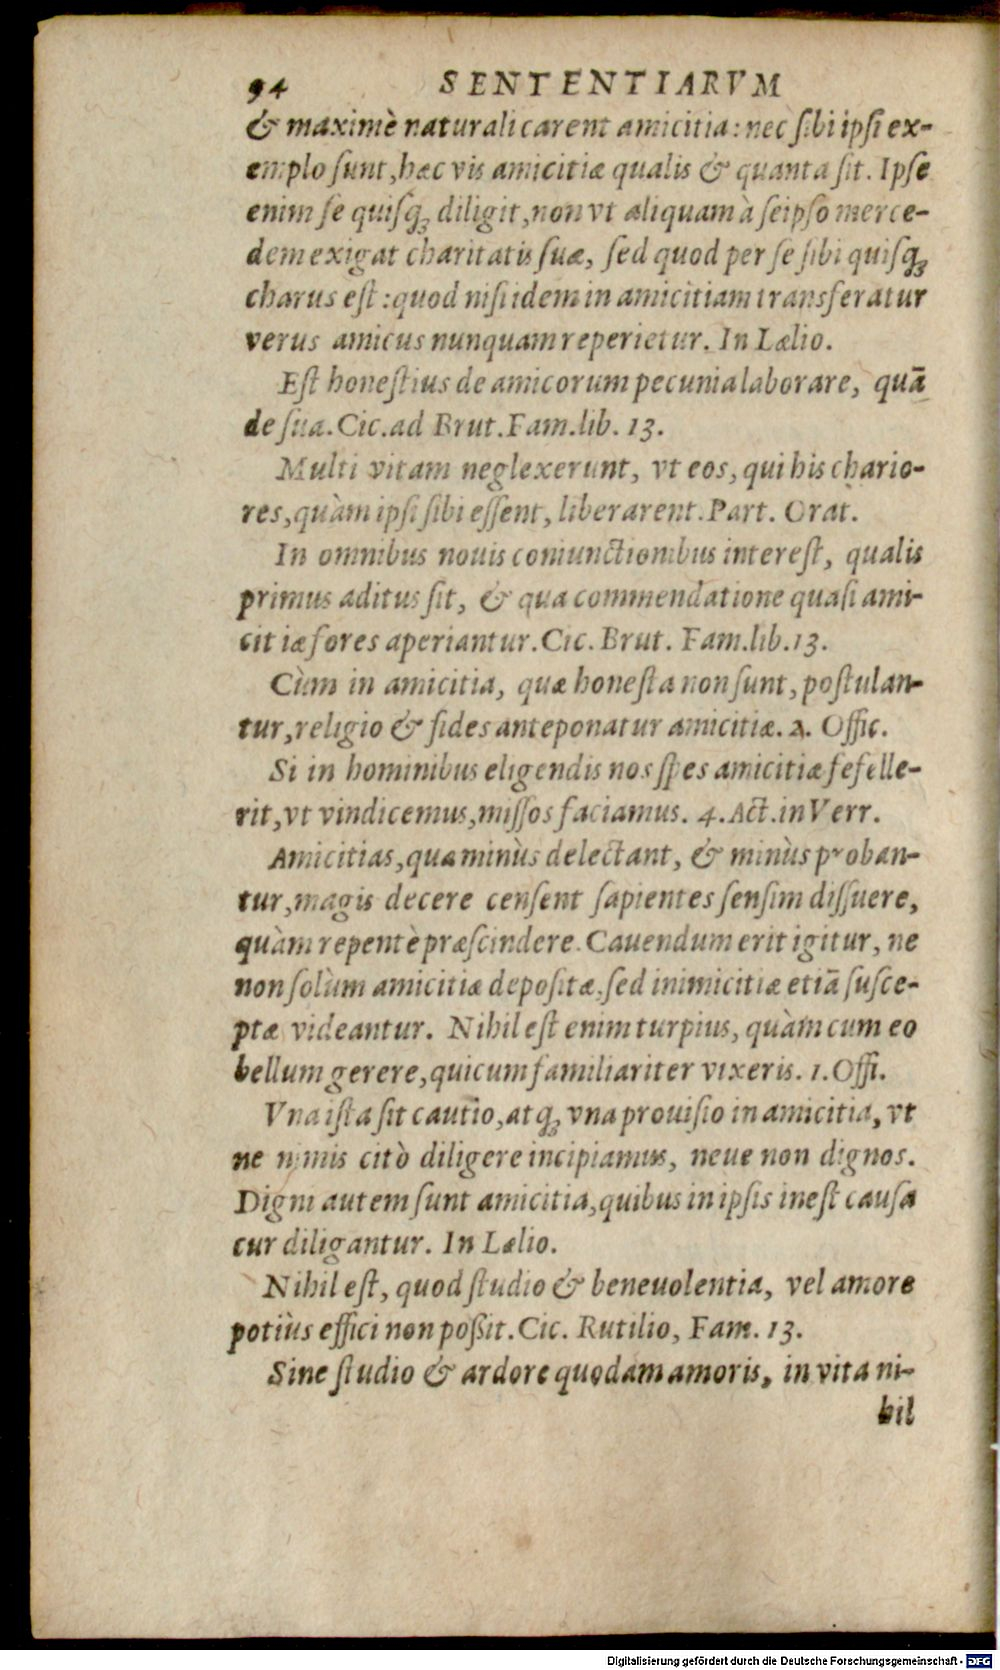 94 SENTENTIARVM
& maximè naturali carent amicitia: nec sibi ipsi ex-
emplo sunt, hæc vis amicitiæ qualis & quanta sit. Ipse
enim se quisq; diligit, non vt aliquam à seipso merce-
dem exigat charitatis suæ, sed quod per se sibi quisq;
charus est: quod nisi idem in amicitiam transferatur
verus amicus nunquam reperietur. In Lælio.
Est honestius de amicorum pecunia laborare, quā
de sua. Cic. ad Brut. Fam. lib. 13.
Multi vitam neglexerunt, vt eos, qui his chario-
res, quàm ipsi sibi essent, liberarent. Part. Orat.
In omnibus nouis coniunctionibus interest, qualis
primus aditus sit, & qua commendatione quasi ami-
citiæ fores aperiantur. Cic. Brut. Fam. lib. 13.
Cùm in amicitia, quæ honesta non sunt, postulan-
tur, religio & fides anteponatur amicitiæ. 2. Offic.
Si in hominibus eligendis nos spes amicitiæ fefelle-
rit, vt vindicemus, missos faciamus. 4. Act. in Verr.
Amicitias, qua minùs delectant, & minùs proban-
tur, magis decere censent sapientes sensim dissuere,
quàm repentè præscindere. Cauendum erit igitur, ne
non solùm amicitiæ depositæ, sed inimicitiæ etiā susce-
ptæ videantur. Nihil est enim turpius, quàm cum eo
bellum gerere, quicum familiariter vixeris. 1. Offi.
Vna ista sit cautio, atq; vna prouisio in amicitia, vt
ne nimis citò diligere incipiamus, neue non dignos.
Digni autem sunt amicitia, quibus in ipsis inest causa
cur diligantur. In Lælio.
Nihil est, quod studio & beneuolentia, vel amore
potiùs effici non poßit. Cic. Rutilio, Fam. 13.
Sine studio & ardore quodam amoris, in vita ni-
hil
Digitalisierung gefördert durch die Deutsche Forschungsgemeinschaft - DFG